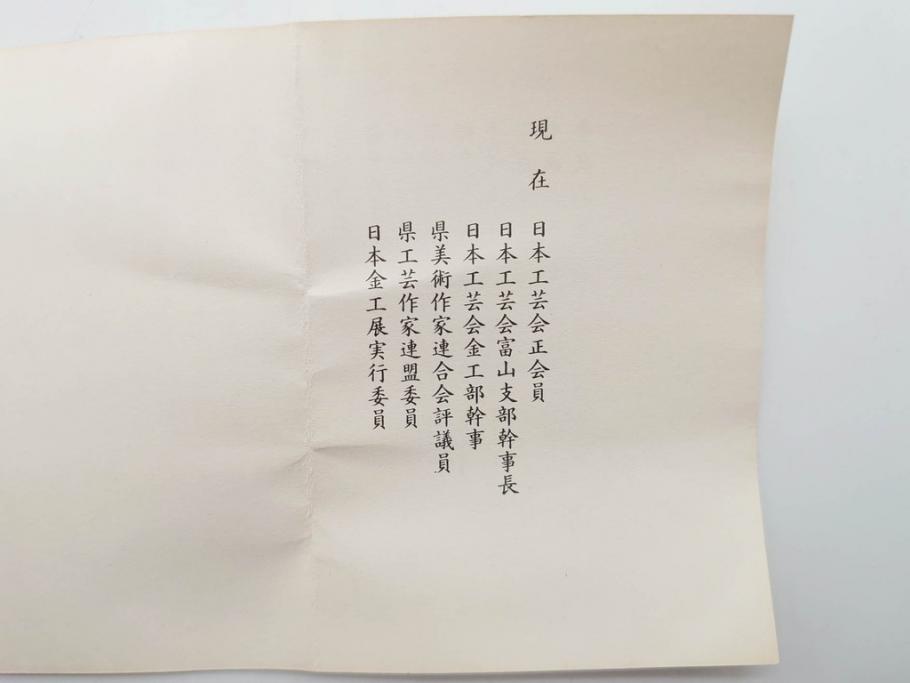 現在 日本工芸会正会員
日本工芸会富山支部幹事長
日本工芸会金工部幹事
県美術作家連合会評議員
県工芸作家連盟委員
日本金工展実行委員